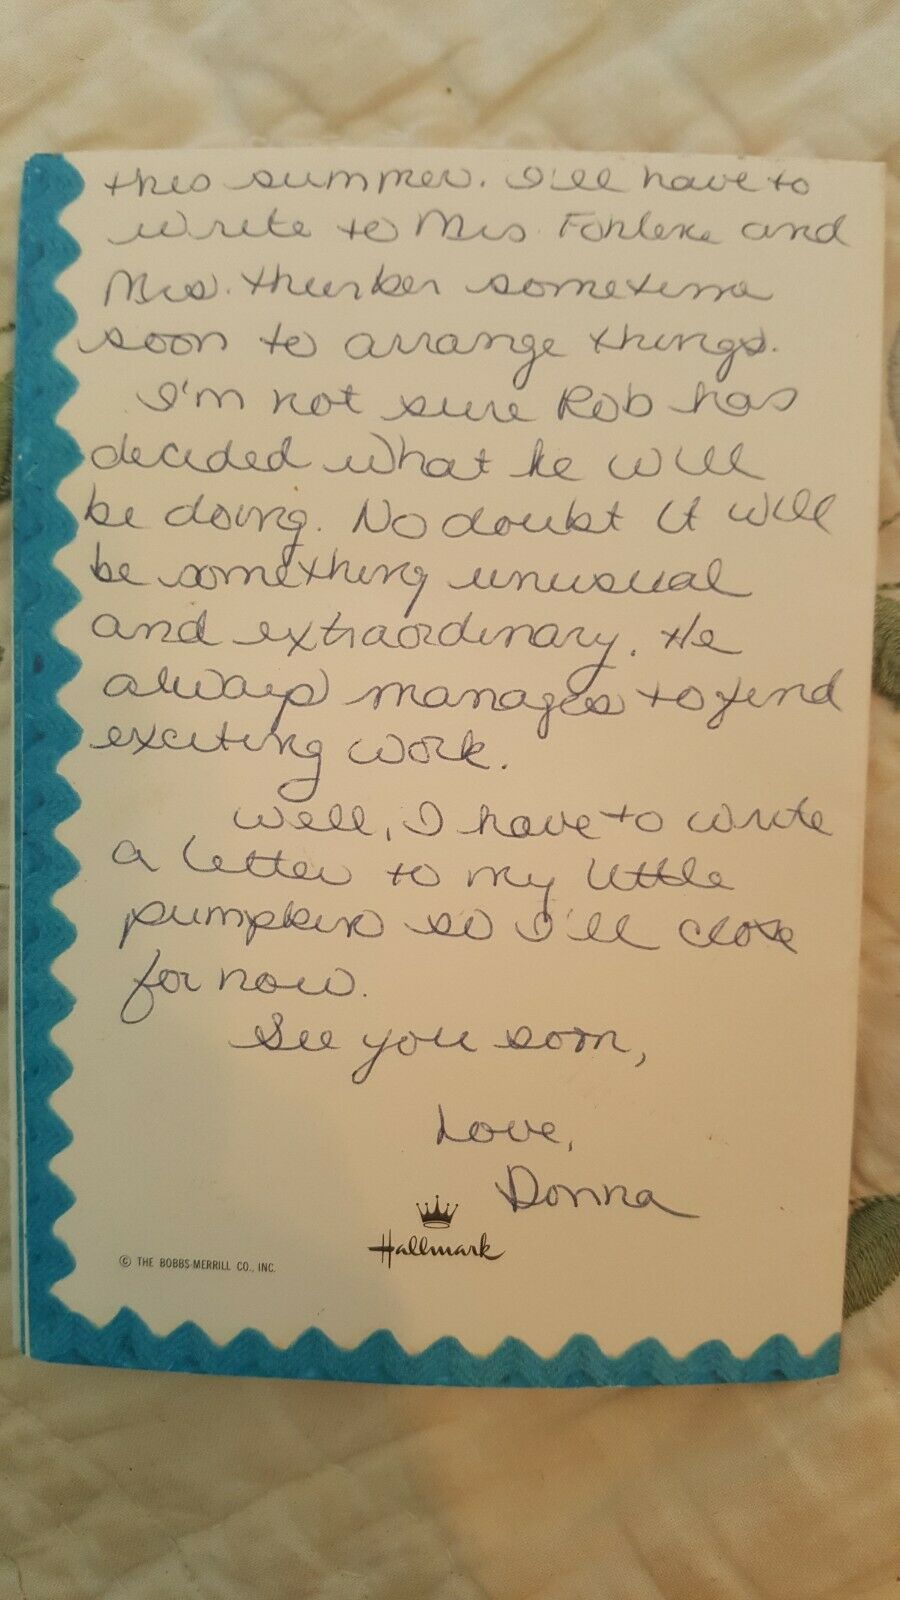 this summer. I'll have to
write to Mrs. Fohlene and
Mrs. Thurber sometime
soon to arrange things.
I'm not sure Rob has
decided what he will
be doing. No doubt it will
be something unusual
and extraordinary. He
always manages to find
exciting work.
Well, I have to write
a letter to my little
pumpkin so I'll close
for now.
See you soon,
Love,
Donna
Hallmark
© THE BOBBS-MERRILL CO., INC.